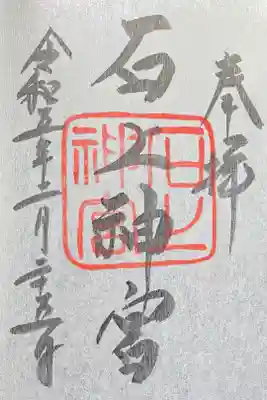 奉拝
石上神宮
石上神宮
令和五年二月二十五日